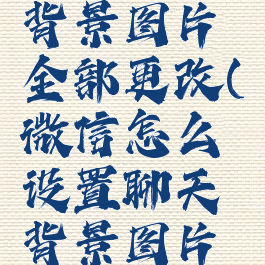 背景图片
全部更改(
微信怎么
设置聊天
背景图片